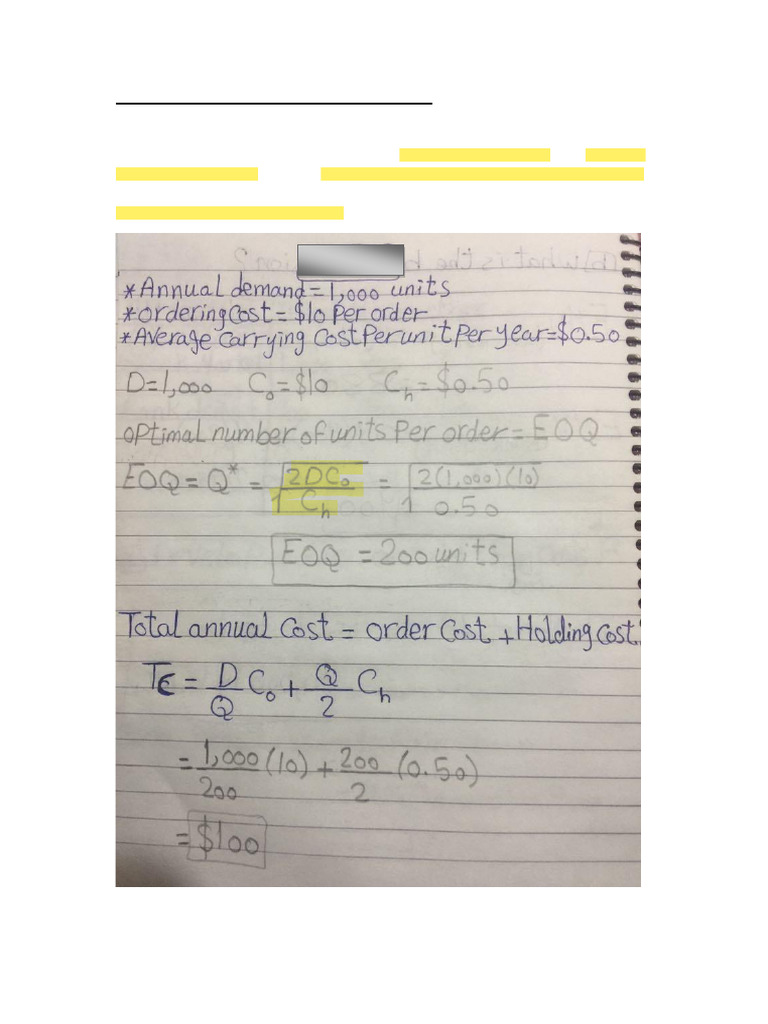 *Annual demand=1,000 units
*ordering Cost=$10 Per order
*Average Carrying Cost Per unit Per year=$0.50
D=1,000 Co=$10 Ch=$0.50
OPtimal number of units Per order=EOQ
EOQ=Q*=√2DCo/Ch=√2(1,000)(10)/0.50
EOQ=200 units
Total annual Cost=order Cost+Holding Cost.
TC=D/Q Co+Q/2 Ch
=1,000/200(10)+200/2(0.50)
=$100